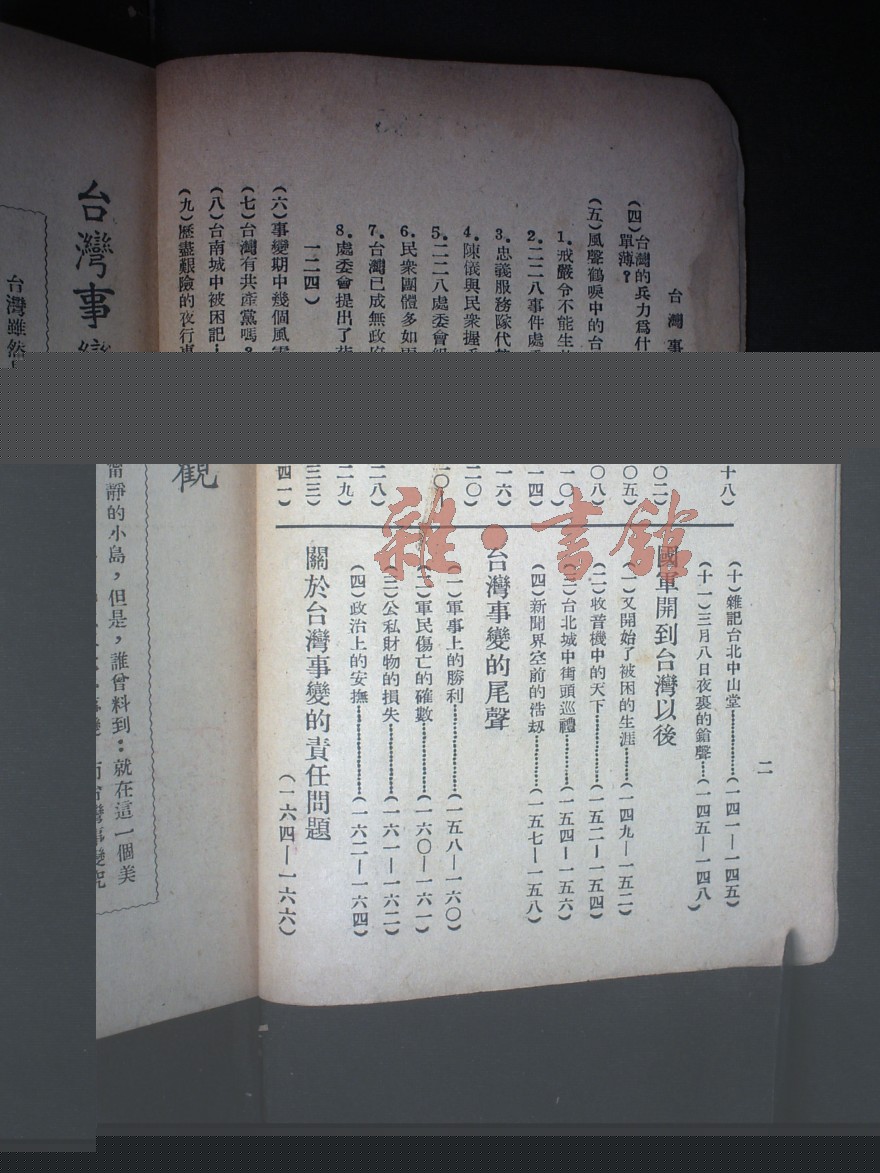 台灣事
二
(四)台灣的兵力爲什
單薄?
(五)風聲鶴唳中的台
1.戒嚴令不能生
2.二二八事件處
3.忠義服務隊代
4.陳儀與民衆握
5.二二八處委會組
6.民衆團體多如雨
7.台灣已成無政府
8.處委會提出了
一二四)
(六)事變期中幾個風雲
(七)台灣有共產黨嗎?
(八)台南城中被困記
(九)歷盡艱險的夜行車
十八)
〇二)
〇五)
〇八)
一〇)
一四)
一六)
二〇)
二八)
二九)
三三)
四一)
(十)雜記台北中山堂…………(一四一—一四五)
(十一)三月八日夜裏的鎗聲…(一四五—一四八)
國軍開到台灣以後
(一)又開始了被困的生涯……(一四九—一五二)
(二)收音機中的天下…………(一五二—一五四)
(三)台北城中街頭巡禮………(一五四—一五六)
(四)新聞界空前的浩刼………(一五七—一五八)
台灣事變的尾聲
(一)軍事上的勝利……………(一五八—一六〇)
(二)軍民傷亡的確數…………(一六〇—一六一)
(三)公私財物的損失…………(一六一—一六二)
(四)政治上的安撫……………(一六二—一六四)
關於台灣事變的責任問題
(一六四—一六六)
台灣事變
觀
台灣雖然
靜的小島,但是,誰曾料到:就在這一個美
雜·書館